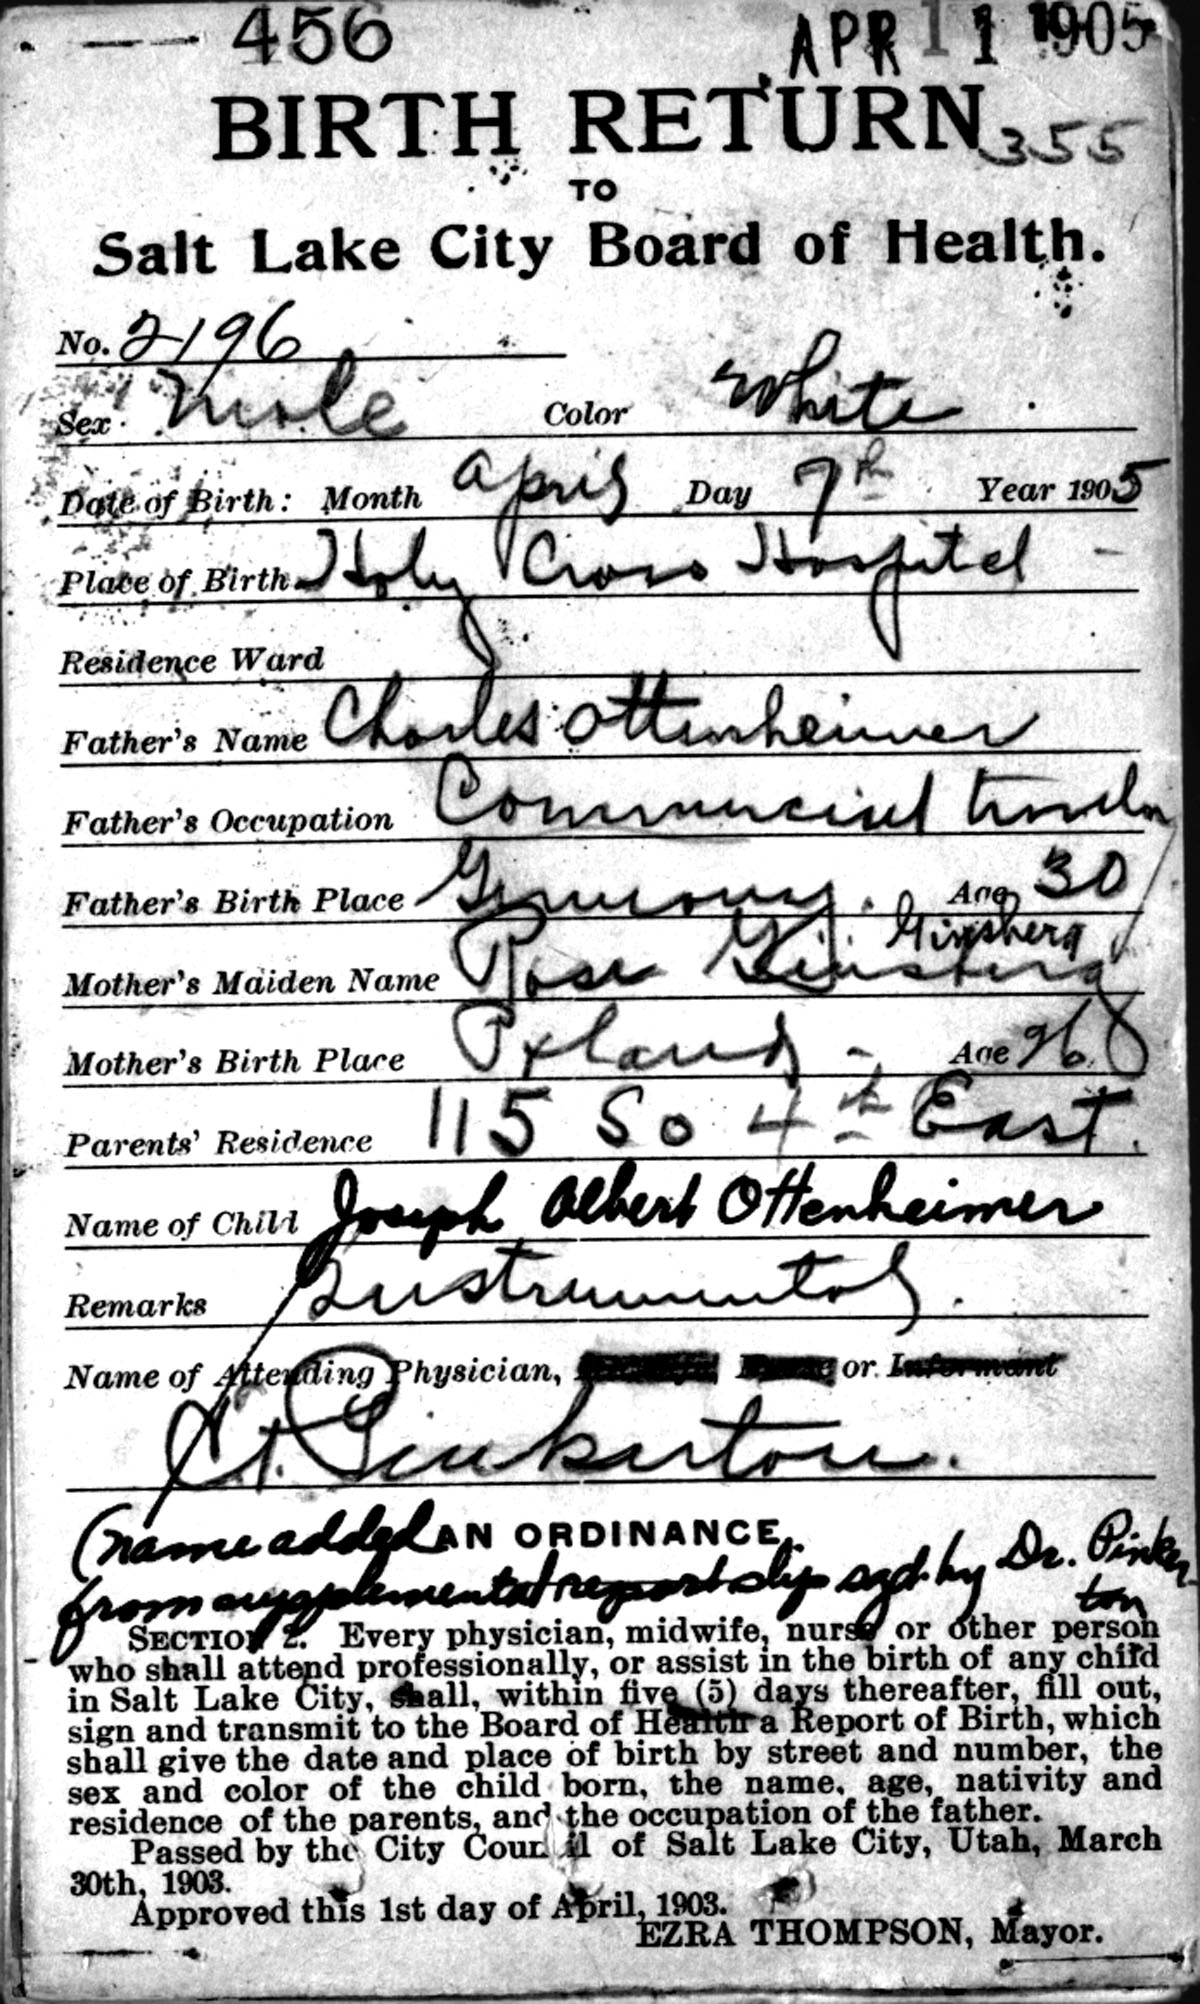 456 APR 11 1905
BIRTH RETURN 355
TO
Salt Lake City Board of Health.
No. 2196
Sex Male Color White
Date of Birth: Month April Day 7th Year 1905
Place of Birth Holy Cross Hospital
Residence Ward
Father's Name Charles Ottenheimer
Father's Occupation Commercial traveler
Father's Birth Place Germany. Age 30
Ginsberg
Mother's Maiden Name Rose Ginsberg
Mother's Birth Place Poland - Age 26
Parents' Residence 115 So 4th East.
Name of Child Joseph Albert Ottenheimer
Remarks Instrumental.
Name of Attending Physician, or Informant
Pinkerton.
(name added AN ORDINANCE.
from supplemental report slip sgd. by Dr. Pinker-
ton
SECTION 2. Every physician, midwife, nurse or other person
who shall attend professionally, or assist in the birth of any child
in Salt Lake City, shall, within five (5) days thereafter, fill out,
sign and transmit to the Board of Health a Report of Birth, which
shall give the date and place of birth by street and number, the
sex and color of the child born, the name, age, nativity and
residence of the parents, and the occupation of the father.
Passed by the City Council of Salt Lake City, Utah, March
30th, 1903.
Approved this 1st day of April, 1903.
EZRA THOMPSON, Mayor.